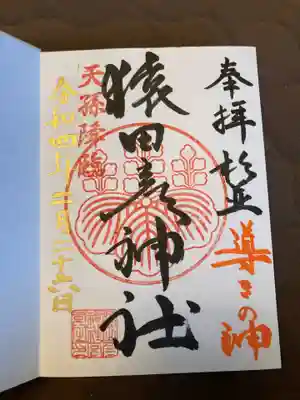 奉拝
導きの神
猿田彦神社
天孫降臨
令和四年二月二十六日